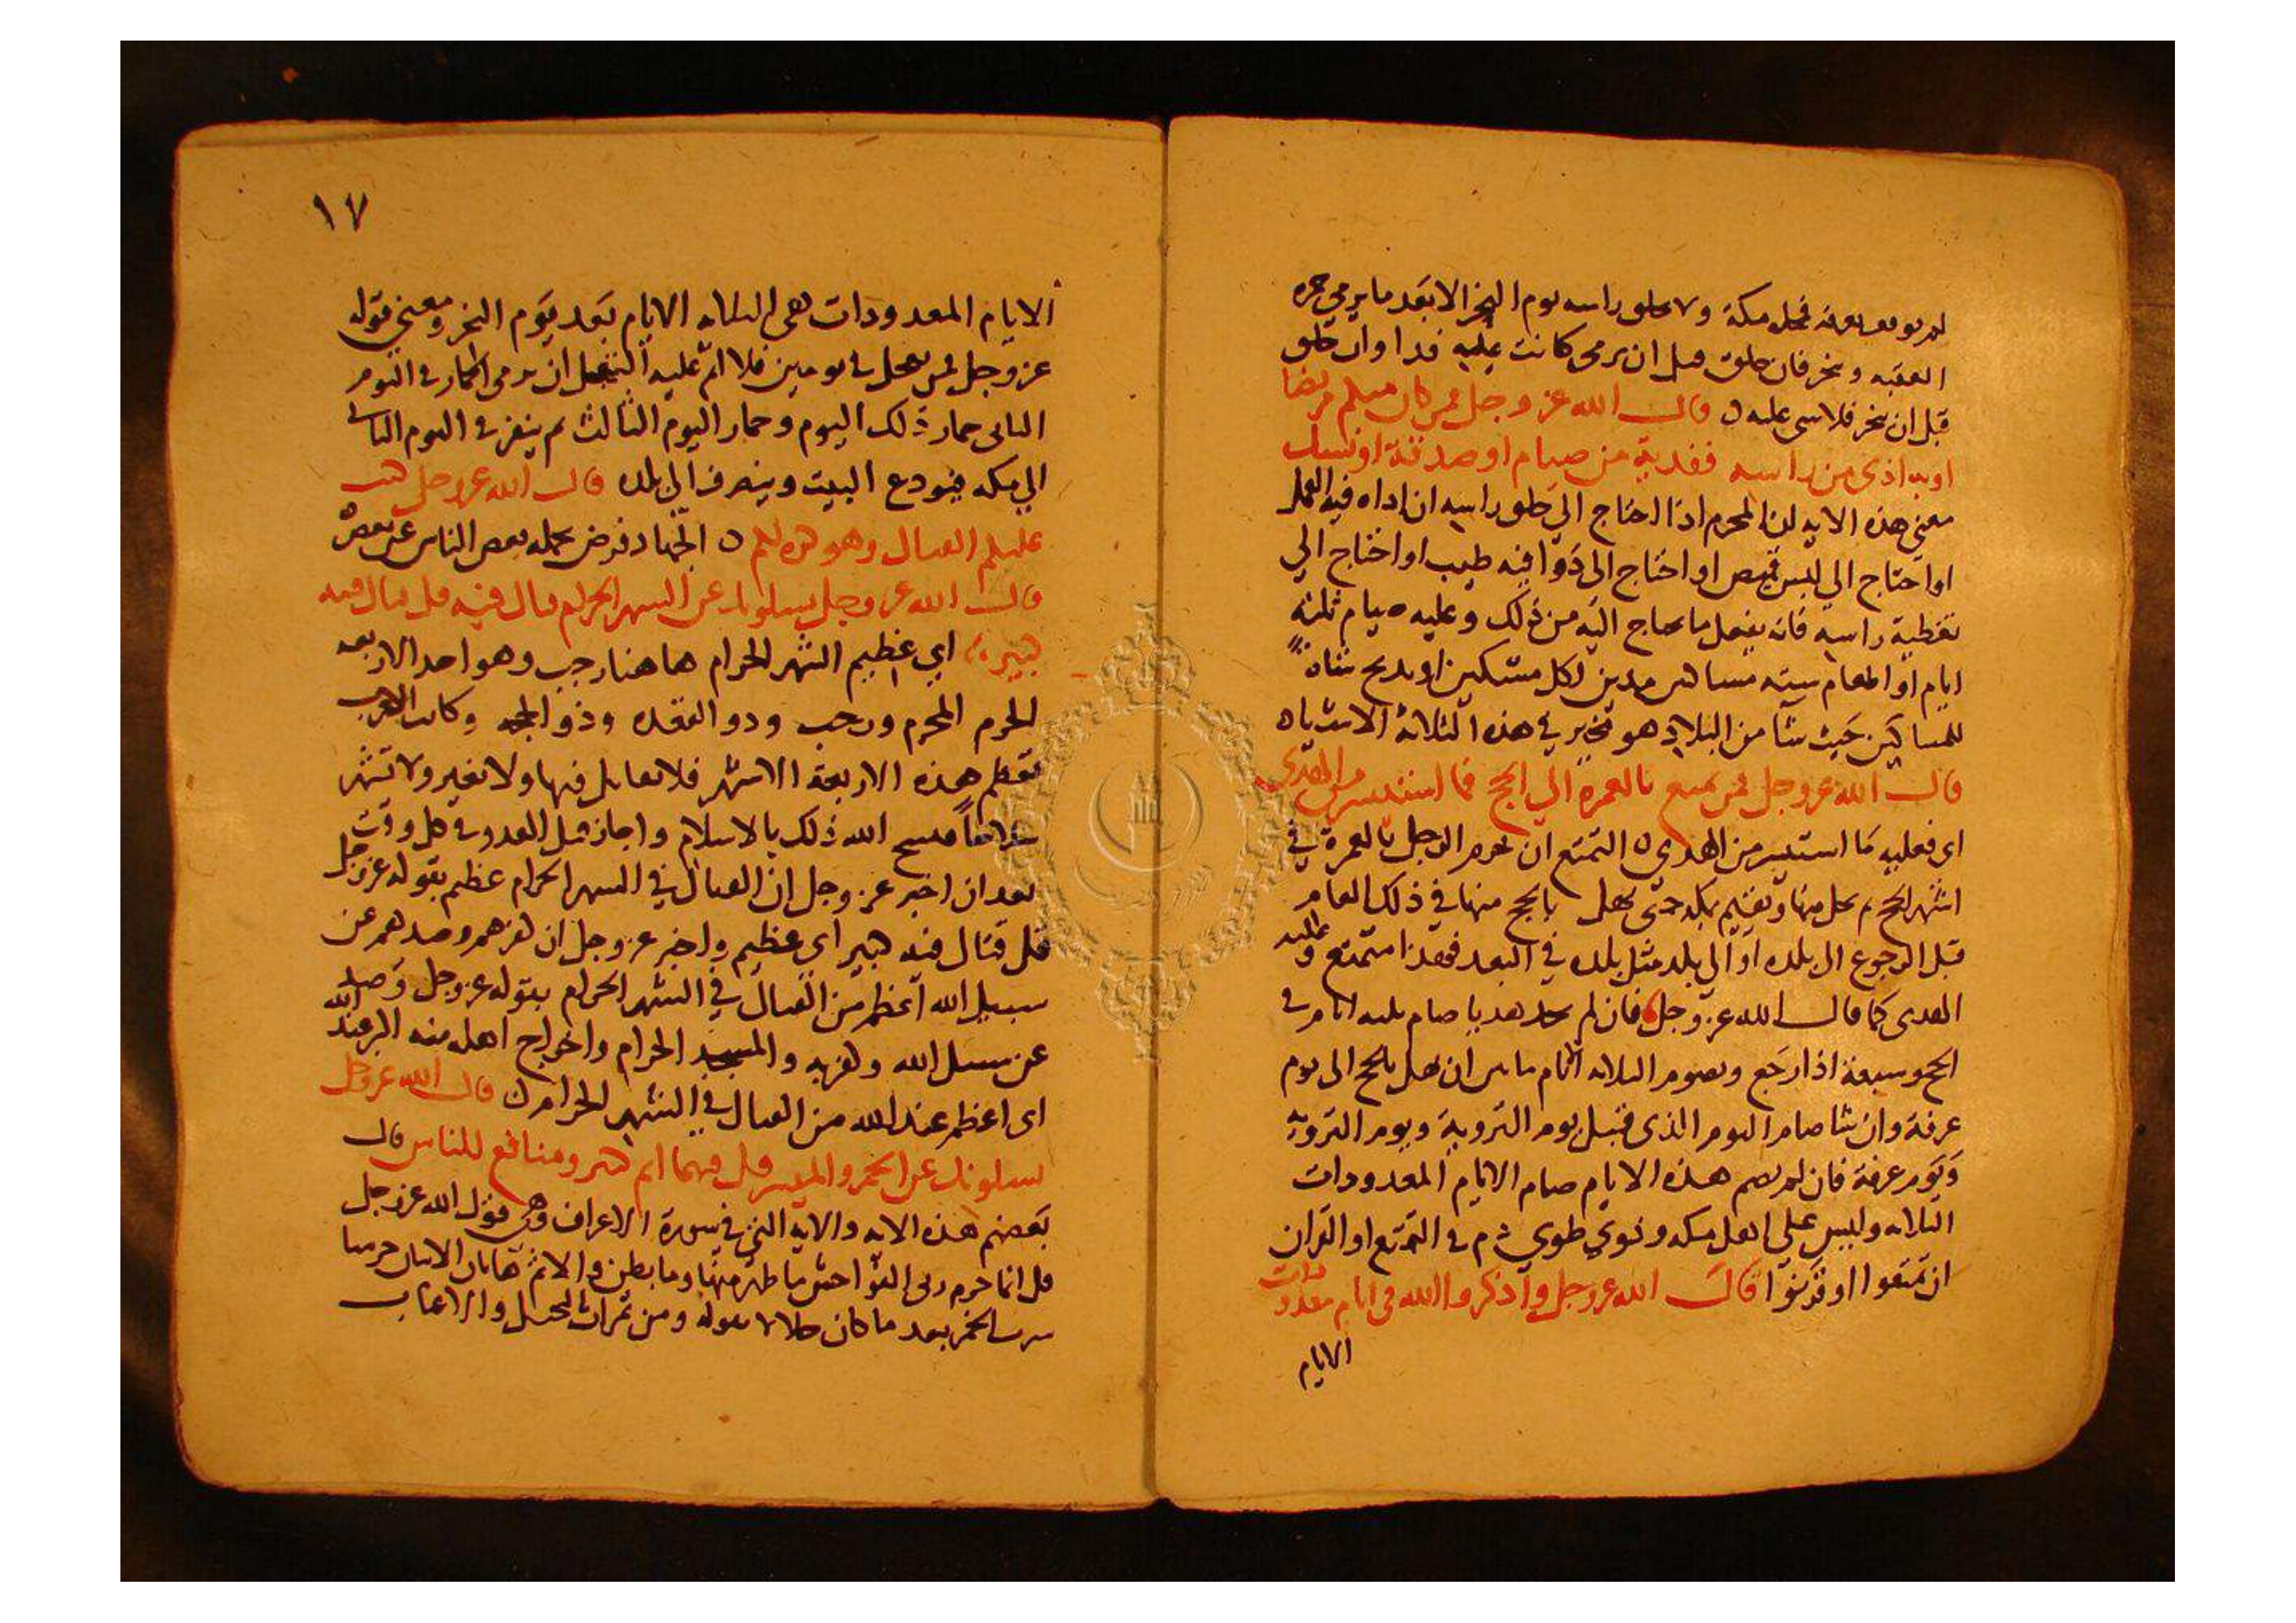 لم يوقف بعرفة فمحله مكة ولا يحلق راسه يوم النحر الا بعد ما يرمي جمرة
العقبة وينحر فان حلق قبل ان يرمي كانت عليه فدا وان حلق
قبل ان ينحر فلا شي عليه ه قال الله عز وجل فمن كان منكم مريضا
او به اذى من راسه ففدية من صيام او صدقة او نسك
معنى هذه الايه ان المحرم اذا احتاج الي حلق راسه ان اداه فيه القمل
او احتاج الي لبس قميص او احتاج الى دوا فيه طيب او احتاج الي
تغطية راسه فانه يفعل ما يحتاج اليه من ذلك وعليه صيام ثلثة
ايام او اطعام سته مساكين مدين لكل مسكين او يذبح شاة
للمساكين حيث شا من البلاد هو تخيير في هذه الثلاثة الاشياء
قال الله عز وجل فمن تمتع بالعمرة الي الحج فما استيسر من الهدى
اى فعليه ما استيسر من الهدي ه التمتع ان يحرم الرجل بالعمرة في
اشهر الحج ثم يحل منها ويقيم بمكة حتى يهل بالحج منها في ذلك العام
قبل الرجوع الى بلده او الي بلد مثل بلده في البعد فقد استمتع وعليه
الهدى كما قال الله عز وجل فان لم يجد هديا صام ثلثه ايام في
الحج وسبعة اذا رجع ويصوم الثلاثه الايام ما بين ان يهل بالحج الى يوم
عرفة وان شا صام اليوم الذي قبل يوم التروية ويوم التروية
ويوم عرفة فان لم يصم هذه الايام صام الايام المعدودات
الثلاثه وليس على اهل مكه وذوي طوي دم في التمتع او القران
ان تمتعوا او قرنوا قال الله عز وجل واذكروا الله في ايام معدودات
الايام
١٧
الايام المعدودات هي الثلاثه الايام بعد يوم النحر ومعنى قوله
عز وجل فمن تعجل في يومين فلا اثم عليه التعجل ان يرمي الجمار في اليوم
الثاني جمار ذلك اليوم وجمار اليوم الثالث ثم ينفر في اليوم الثاني
الي مكه فيودع البيت وينصرف الي بلده قال الله عز وجل كتب
عليكم القتال وهو كره لكم ه الجهاد فرض يحمله بعض الناس عن بعض ه
قال الله عز وجل يسلونك عن الشهر الحرام قتال فيه قل قتال فيه
كبير اي عظيم الشهر الحرام هاهنا رجب وهو احد الاربعه
الحرم المحرم ورجب وذو القعده وذو الحجه وكانت العرب
تعظم هذه الاربعة الاشهر فلا تقاتل فيها ولا تغير ولا تشهر
سلاحا فنسخ الله ذلك بالاسلام واجاز قتل العدو في كل وقت
بعد ان اخبر عز وجل ان القتال في الشهر الحرام عظيم بقوله عز وجل
قل قتال فيه كبير اي عظيم واخبر عز وجل ان كفرهم وصدهم عن
سبيل الله اعظم من القتال في الشهر الحرام بقوله عز وجل وصد
عن سبيل الله وكفر به والمسجد الحرام واخراج اهله منه اكبر عند الله
اى اعظم عند الله من القتال في الشهر الحرام ه قال الله عز وجل
يسلونك عن الخمر والميسر قل فيهما اثم كبير ومنافع للناس قال
بعضهم هذه الايه والايه التي في سورة الاعراف وهي قول الله عز وجل
قل انما حرم ربي الفواحش ما ظهر منها وما بطن والاثم هاتان الايتان حرمتا
شرب الخمر بعد ما كان حلالا بقوله ومن ثمرات النخيل والاعناب